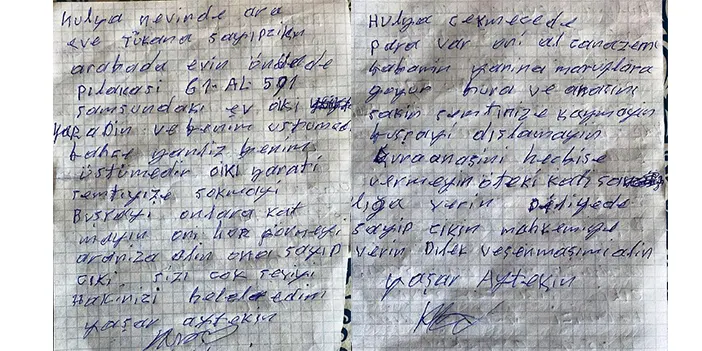 Hulya nevinde ara
eve Tükana sayıpzikın
arabada evin önündade
pılakası 61-AL 591
samsundaki ev oki
yapadın ve benim üstümed
bahçe yanlız benim
üstümedir oiki yarati
semtiyize sokmayi
Buşrayi onlara kat
mayin onı hor görmeyi
aranıza alin ona sayip
cıki sizi cok seviyi
Hakinizi helal edini
yaşar aytekin
Hulya cekmecede
para var oni al canazemi
babamin yanina maruflara
goyun bura ve anasini
sakin semtinize koymayın
buşrayi dişlamayin
bvraanasini hecbişe
vermeyin öteki kati sa
liga verin Didiyede
sayip cikin mahkemiye
verin Dilek vesenmaşimi alin
yaşar Aytekin